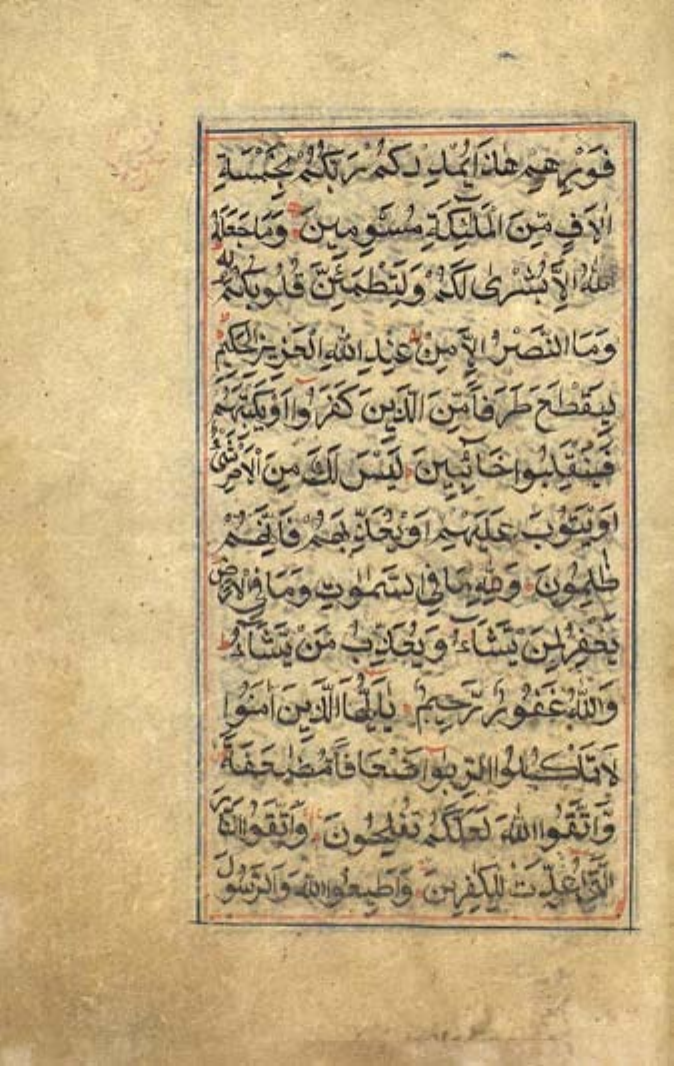 فَوْرِهِمْ هٰذَا يُمْدِدْكُمْ رَبُّكُمْ بِخَمْسَةِ
اٰلَافٍ مِّنَ الْمَلٰئِكَةِ مُسَوِّمِينَ وَمَا جَعَلَهُ
اللّٰهُ اِلَّا بُشْرٰى لَكُمْ وَلِتَطْمَئِنَّ قُلُوبُكُمْ بِهِ
وَمَا النَّصْرُ اِلَّا مِنْ عِنْدِ اللّٰهِ الْعَزِيزِ الْحَكِيمِ
لِيَقْطَعَ طَرَفًا مِّنَ الَّذِينَ كَفَرُوا اَوْ يَكْبِتَهُمْ
فَيَنْقَلِبُوا خَائِبِينَ لَيْسَ لَكَ مِنَ الْاَمْرِ شَىْءٌ
اَوْ يَتُوبَ عَلَيْهِمْ اَوْ يُعَذِّبَهُمْ فَاِنَّهُمْ
ظٰلِمُونَ وَلِلّٰهِ مَا فِى السَّمٰوٰتِ وَمَا فِى الْاَرْضِ
يَغْفِرُ لِمَنْ يَّشَاءُ وَيُعَذِّبُ مَنْ يَّشَاءُ
وَاللّٰهُ غَفُورٌ رَّحِيمٌ يٰاَيُّهَا الَّذِينَ اٰمَنُوا
لَا تَاْكُلُوا الرِّبٰوا اَضْعَافًا مُّضٰعَفَةً
وَّاتَّقُوا اللّٰهَ لَعَلَّكُمْ تُفْلِحُونَ وَاتَّقُوا النَّارَ
الَّتِى اُعِدَّتْ لِلْكٰفِرِينَ وَاَطِيعُوا اللّٰهَ وَالرَّسُولَ